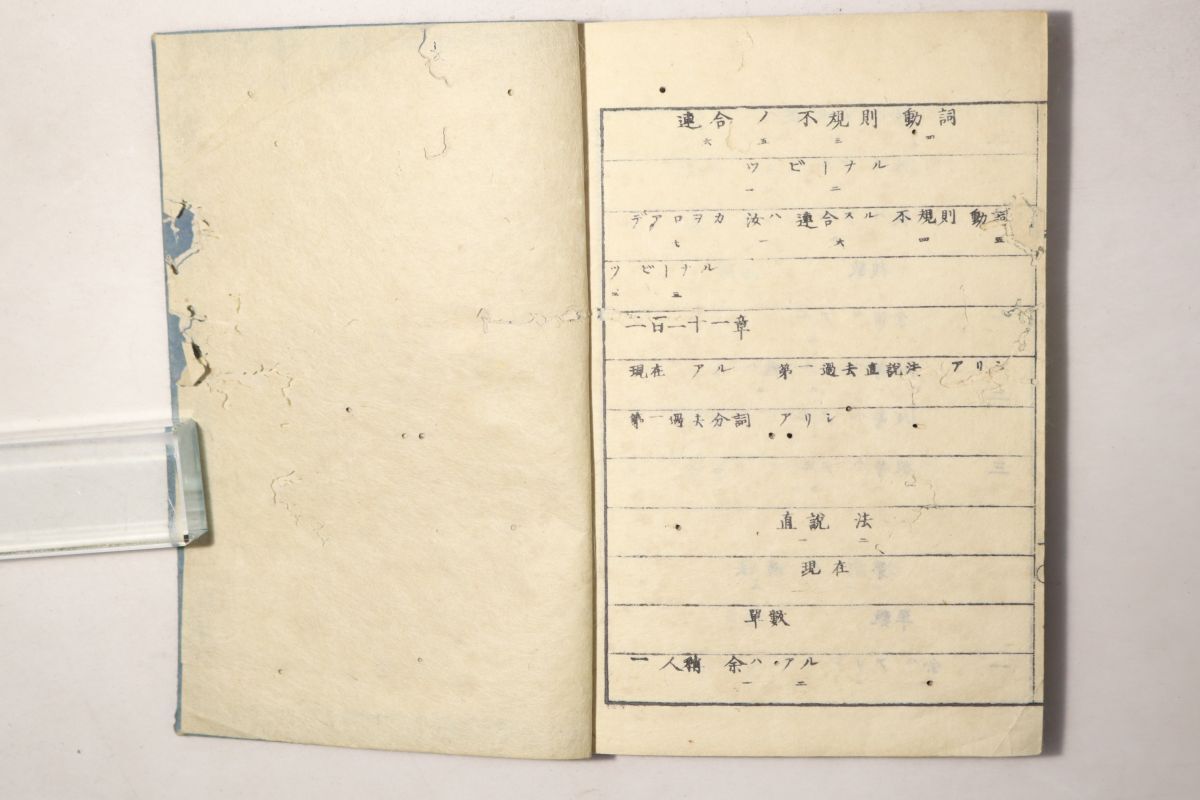 連合ノ不規則動詞
六 五 三 四
ツビーナル
一 二
デアロヲカ 汝ハ 連合スル 不規則動詞
七 一 六 四 五
ツビーナル
二 三
二百二十一章
現在 アル 第一過去直說法 アリシ
第一過去分詞 アリシ
直說法
一 二
現在
單數
一人稱 余ハ・アル
一 二